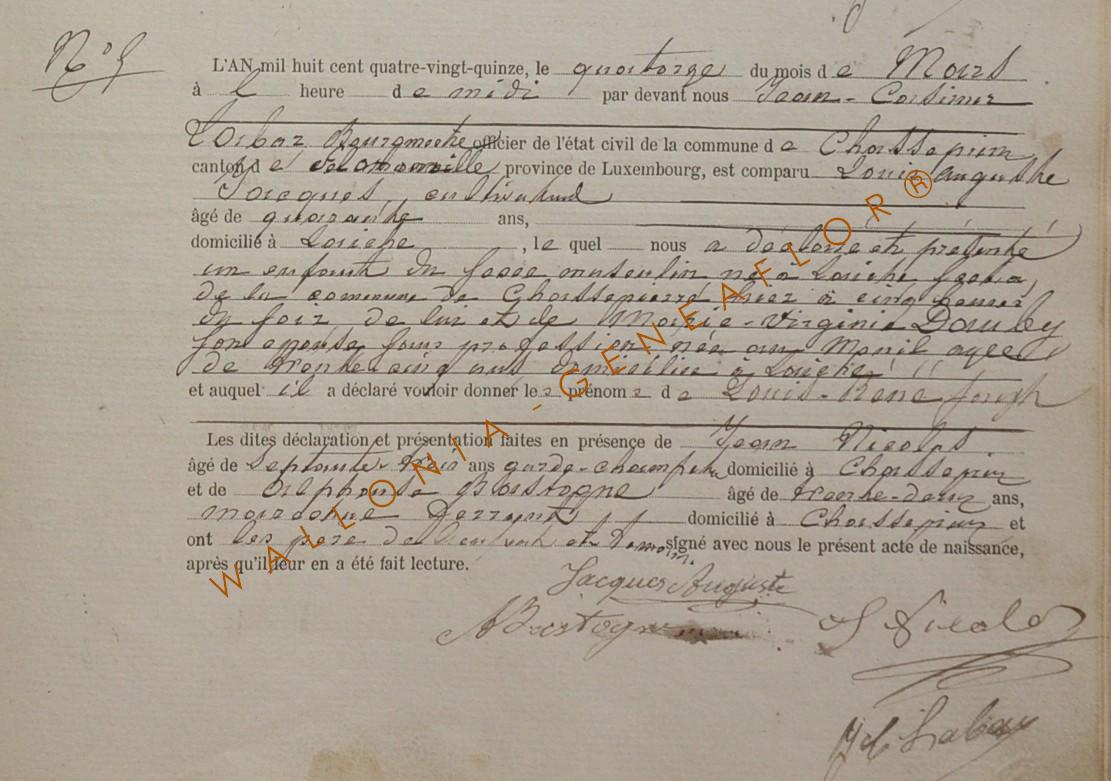 N° 5
L'AN mil huit cent quatre-vingt-quinze, le quatorze du mois de Mars
à heure de midi par devant nous Jean-Casimir
Bourgmestre officier de l'état civil de la commune de Chassepierre
canton de province de Luxembourg, est comparu Louis Auguste
Jacques, cultivateur
âgé de quarante ans,
domicilié à Laiche, lequel nous a déclaré et présenté
un enfant du sexe masculin né à Laiche
de la commune de Chassepierre hier à cinq heures
du soir, de lui et de Marie-Virginie Dauby
son épouse sans profession née au Menil agée
de trente cinq ans domiciliée à Laiche
et auquel il a déclaré vouloir donner les prénoms de Louis-René Joseph
Les dites déclaration et présentation faites en présence de Jean Nicolas
âgé de septante trois ans garde-champêtre domicilié à Chassepierre
et de Alphonse Bastogne âgé de trente-deux ans,
domicilié à Chassepierre et
ont les père de l'enfant et témoins signé avec nous le présent acte de naissance,
après qu'il leur en a été fait lecture.
Jacques Auguste
A Bastogne
J Nicolas
WALLONIA - GENEAFLOR®